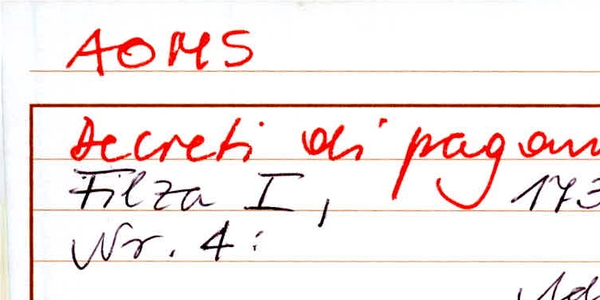 AOMS
Decreti di pagam
Filza I, 173
Nr. 4: